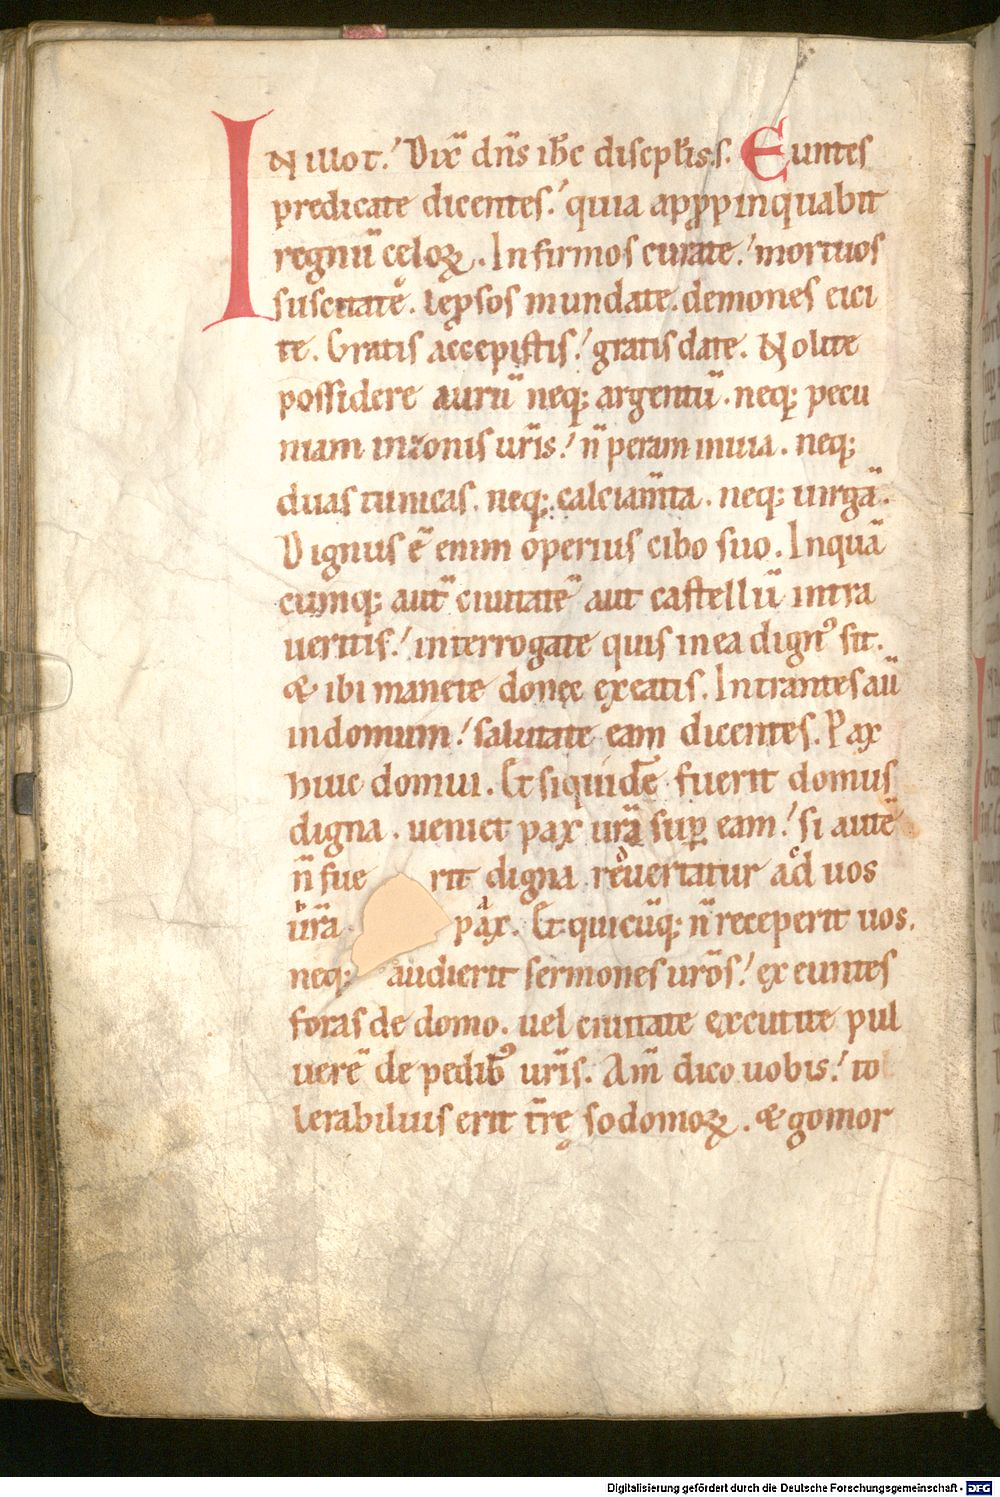 IN illo t.' Dix̄ dn̄s ih̄c discipl̄is.s. Euntes
predicate dicentes.' quia apprpinquabit
regnū cęloꝝ. Infirmos curate.' mortuos
suscitate. lępsos mundate. demones eici
te. Gratis accepistis.' gratis date. Nolite
possidere aurū neq; argentū. neq; pecu
niam in zonis ur̄is.' n̄ peram in uia. neq;
duas tunicas. neq; calciam̄ta. neq; uirgā.
Dignus ē enim operius cibo suo. In quā
cumq; aut̄ ciuitatē aut castellū intra
ueritis.' interrogate quis in ea dign᾽ sit.
& ibi manete donec exeatis. Intrantes aū
in domum.' salutate eam dicentes. Pax
huic domui. Et siquidē fuerit domus
digna. ueniet pax ur̄a sup̄ eam.' si autē
n̄ fue rit digna reuertatur ad uos
ur̄a pax. Et quicūq; n̄ receperit uos.
neq; audierit sermones ur̄os.' exeuntes
foras de domo. uel ciuitate excutite pul
uerē de pedib᾽ ur̄is. Am̄ dico uobis.' tol
lerabilius erit tr̄ę sodomoꝝ. & gomor
Digitalisierung gefördert durch die Deutsche Forschungsgemeinschaft - DFG